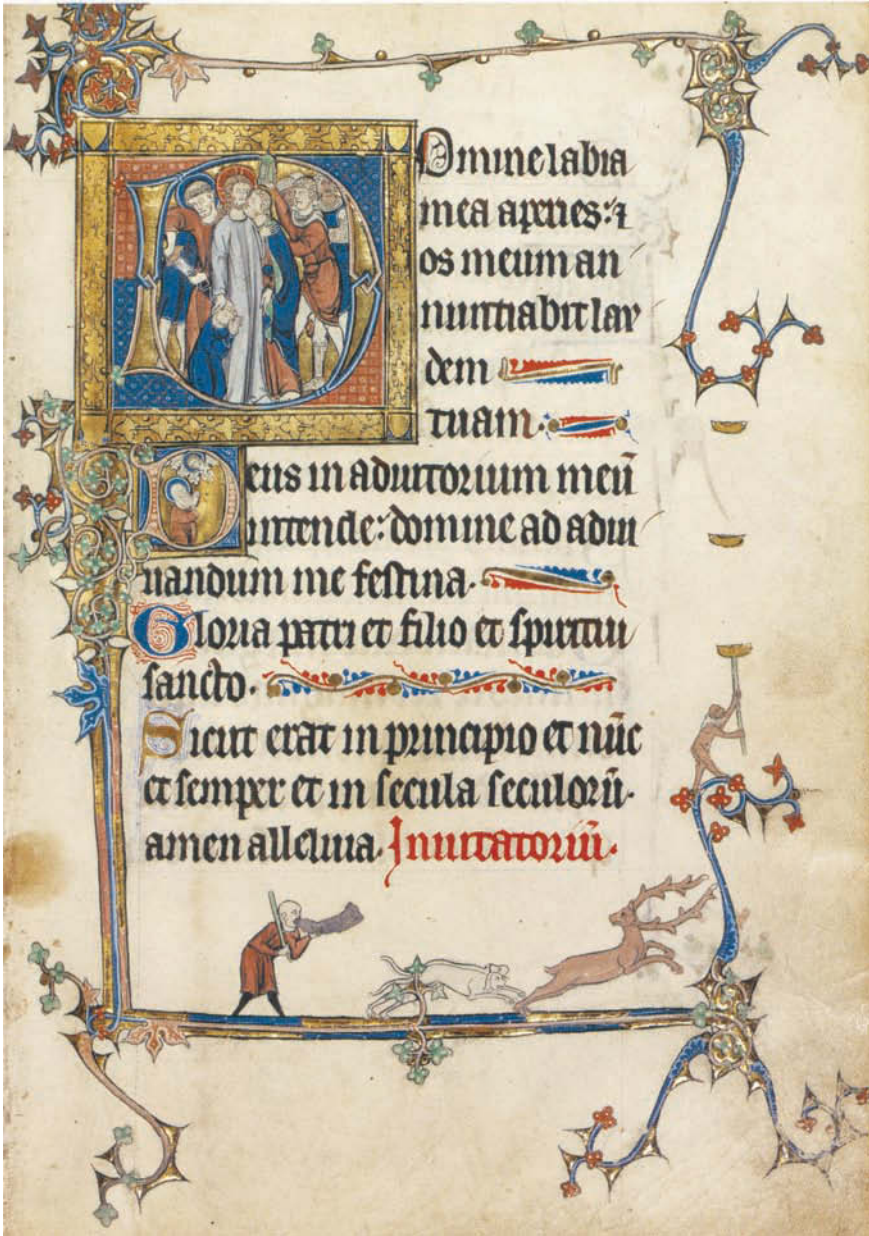 Domine labia
mea aperies: ⁊
os meum an
nuntiabit lau
dem
tuam.
Deus in adiutorium meū
intende: domine ad adiu
uandum me festina.
Gloria patri et filio et spiritui
sancto.
Sicut erat in principio et nūc
et semper et in secula seculorū.
amen alleluia. Inuitatoriū.